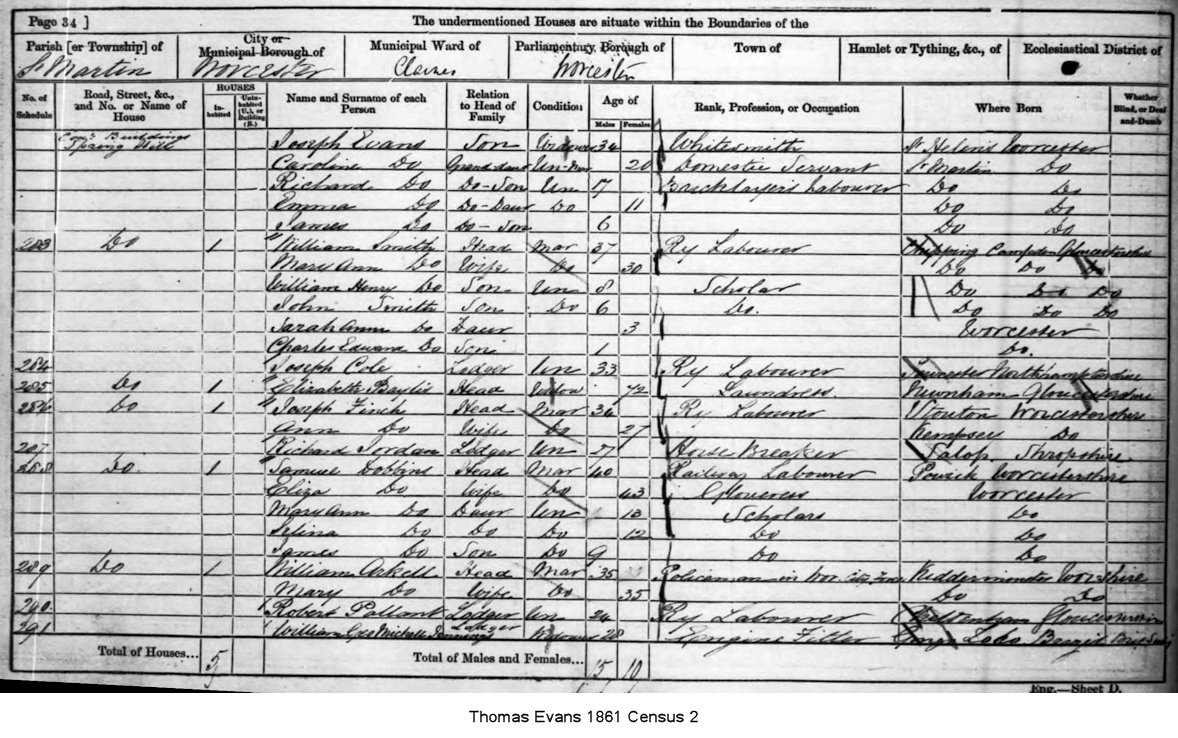 Page 34 ]
The undermentioned Houses are situate within the Boundaries of the
Parish [or Township] of
City or Municipal Borough of
Municipal Ward of
Parliamentary Borough of
Town of
Hamlet or Tything, &c., of
Ecclesiastical District of
St Martin Worcester Claines Worcester
No. of Schedule
Road, Street, &c., and No. or Name of House
HOUSES
Inhabited
Uninhabited (U.), or Building (B.)
Name and Surname of each Person
Relation to Head of Family
Condition
Age of
Males Females
Rank, Profession, or Occupation
Where Born
Whether Blind, or Deaf-and-Dumb
Buildings Spring Hill
Joseph Evans Son Widower 34 Whitesmith St Helens Worcester
Caroline Do Un-Mar 20 Domestic Servant St Martin Do
Richard Do Do-Son Un 17 Bricklayer's Labourer Do Do
Emma Do Do-Daur Do 11 Do Do
James Do Do-Son 6 Do Do
283 Do 1 William Smith Head Mar 37 Ry Labourer Chipping Campden Gloucestershire
Mary Ann Do Wife Do 30 Do Do Do
William Henry Do Son Un 8 Scholar Do Do Do
John Smith Son Do 6 Do. Do Do Do
Sarah Ann Do Daur 3 Worcester
Charles Edward Do Son 1 Do.
284 Joseph Cole Lodger Un 33 Ry Labourer Northamptonshire
285 Do 1 Elizabeth Baylis Head Widow 72 Laundress Newnham Gloucestershire
286 Do 1 Joseph Finch Head Mar 34 Ry Labourer Worcestershire
Ann Do Wife Do 27 Kempsey Do
287 Richard Jordan Lodger Un 27 Horse Breaker Salop Shropshire
288 Do. 1 Samuel Dobbins Head Mar 40 Railway Labourer Powick Worcestershire
Eliza Do Wife Do 43 Gloveress Worcester
Mary Ann Do Daur Un 13 Scholars Do
Selina Do Do Do 12 Do Do
James Do Son Do 9 Do Do
289 Do 1 William Arkell Head Mar 35 Policeman in Wor. City Force Kidderminster Worshire
Mary Do Wife Do 35 Do Do
290 Robert Pollant Lodger Un 24 Ry Labourer Cheltenham Gloucestershire
291 William Geo Michell Jennings Lodger Widower 28 Engine Fitter Brazil
Total of Houses... 5
Total of Males and Females... 15 10
Eng.—Sheet D.
Thomas Evans 1861 Census 2